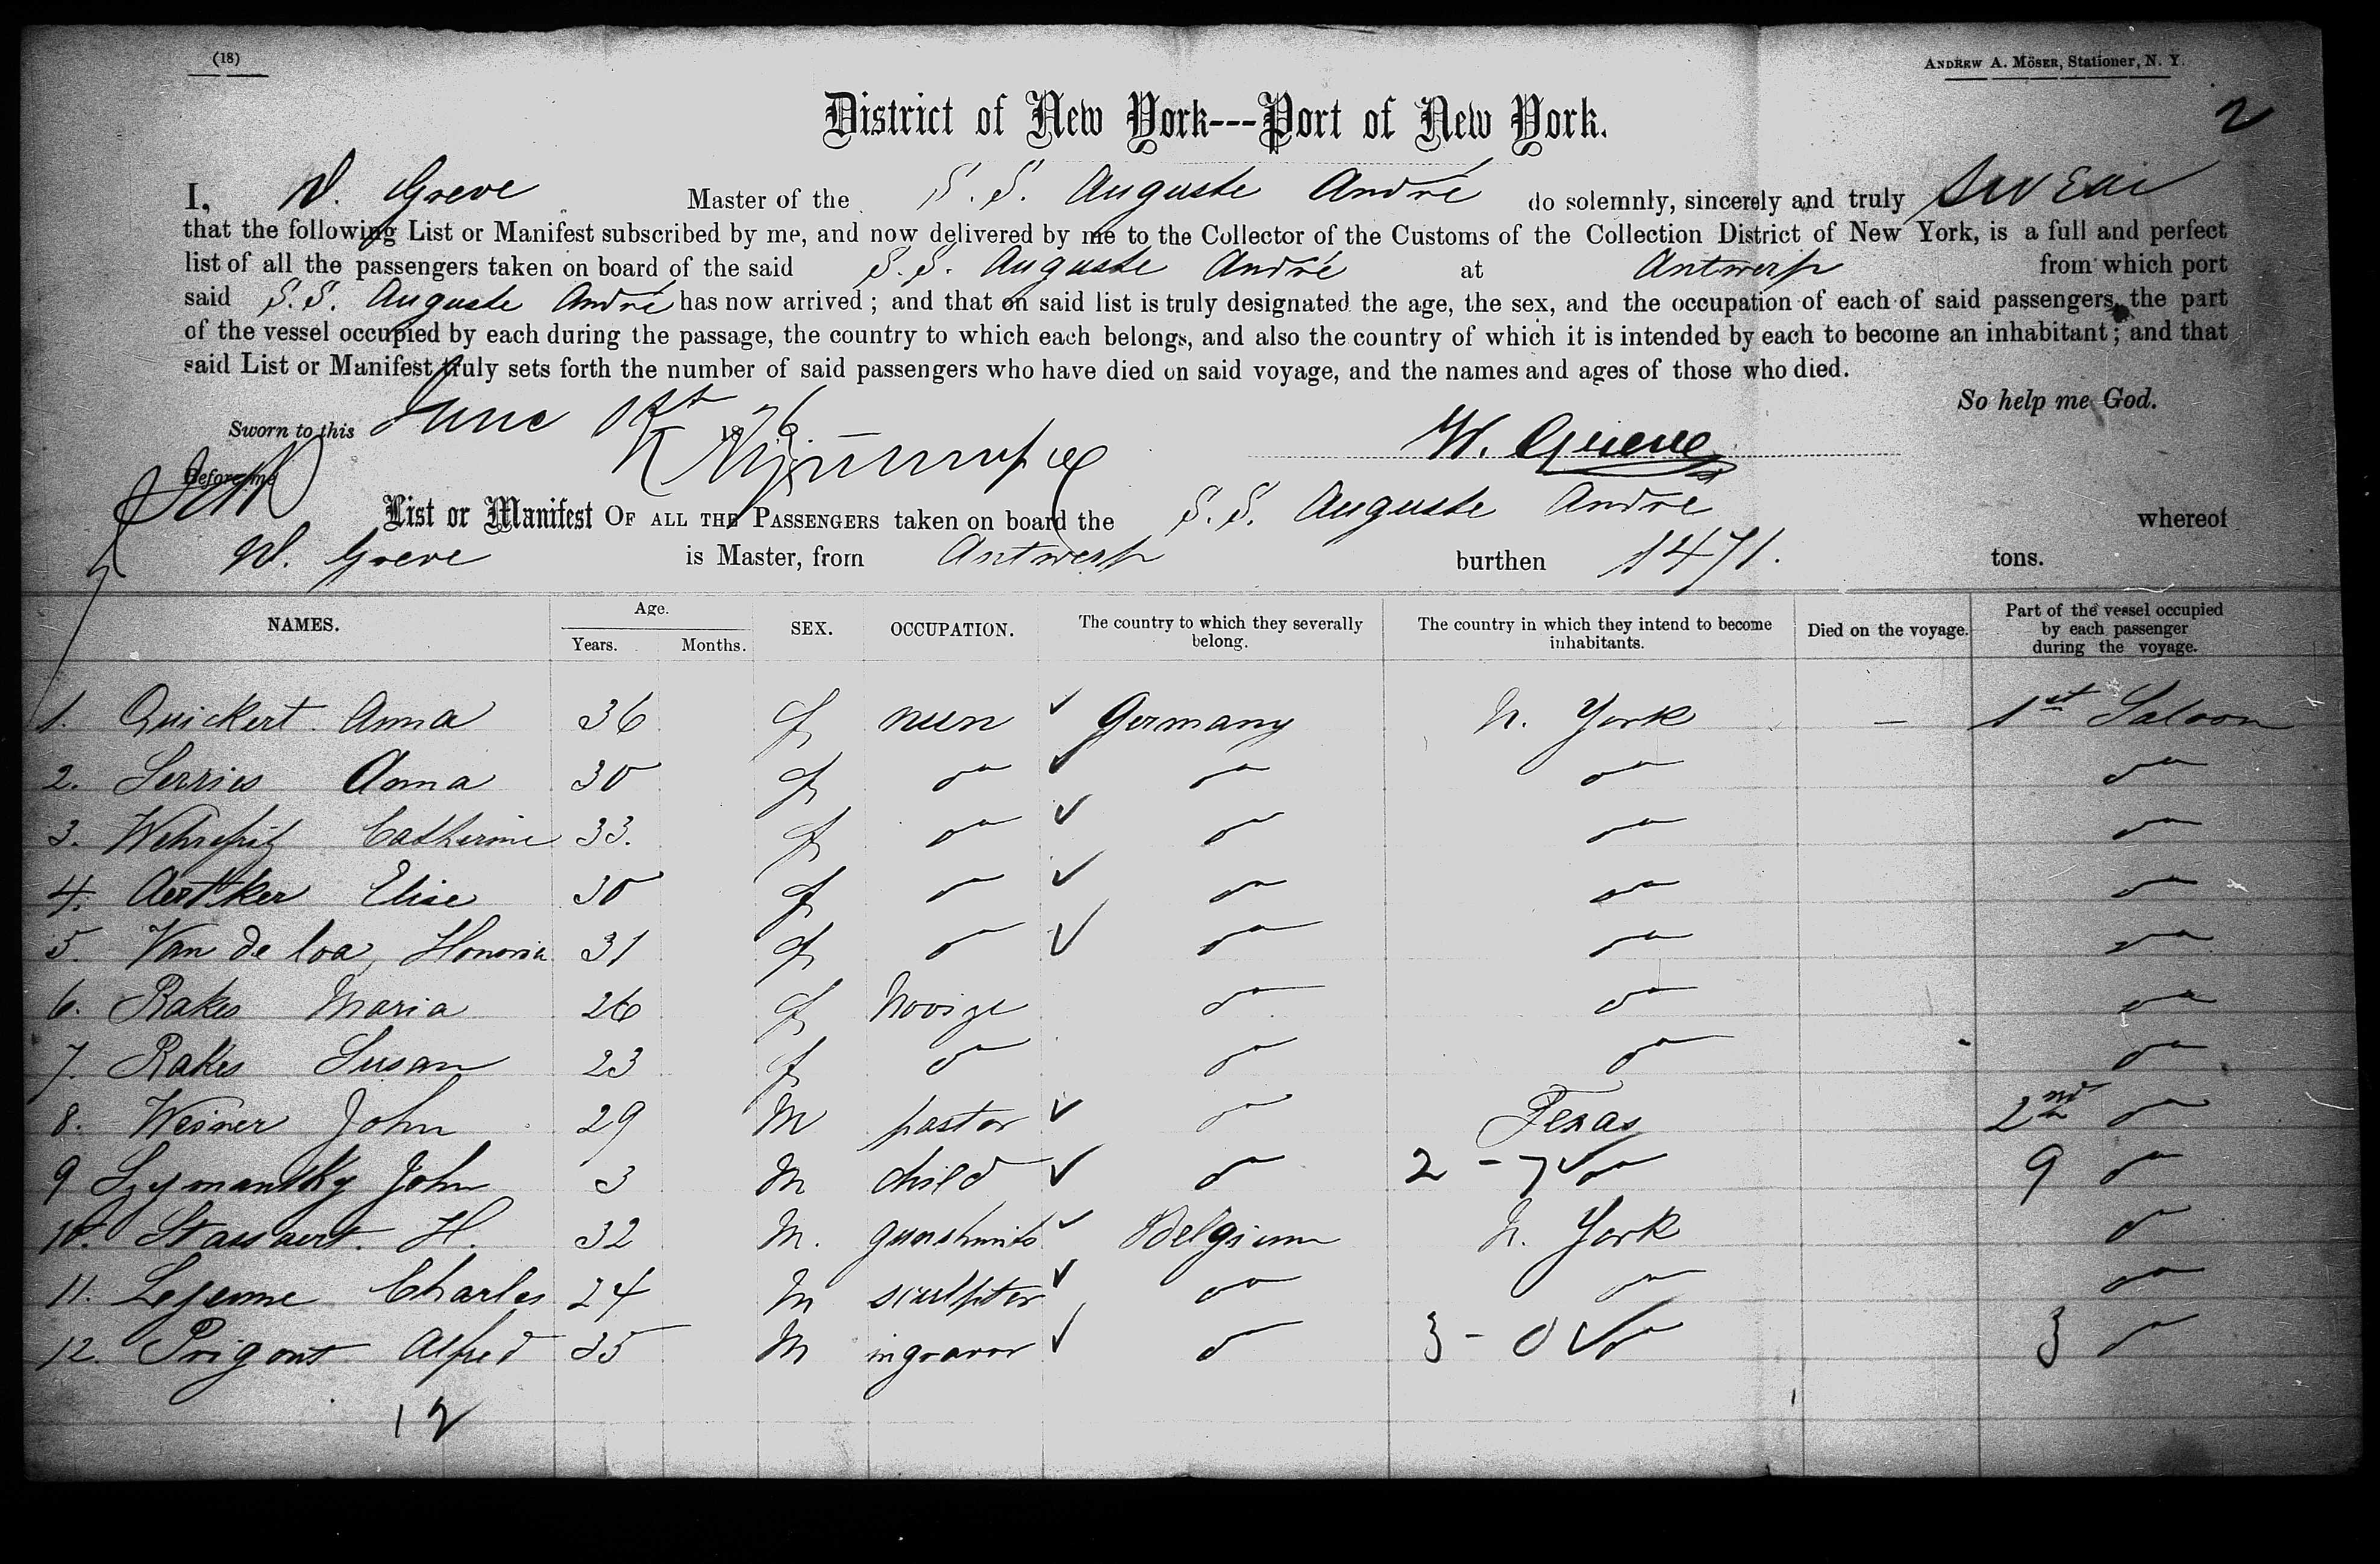 (18)
ANDREW A. MÖSER, Stationer, N. Y.
2
District of New York---Port of New York.
I, W. Greve Master of the S. S. Auguste André do solemnly, sincerely and truly swear
that the following List or Manifest subscribed by me, and now delivered by me to the Collector of the Customs of the Collection District of New York, is a full and perfect
list of all the passengers taken on board of the said S. S. Auguste André at Antwerp from which port
said S. S. Auguste André has now arrived; and that on said list is truly designated the age, the sex, and the occupation of each of said passengers, the part
of the vessel occupied by each during the passage, the country to which each belongs, and also the country of which it is intended by each to become an inhabitant; and that
said List or Manifest truly sets forth the number of said passengers who have died on said voyage, and the names and ages of those who died.
So help me God.
Sworn to this June 1st 1876
W. Greve
Before me
List or Manifest OF ALL THE PASSENGERS taken on board the S. S. Auguste André whereof
W. Greve is Master, from Antwerp burthen 1471. tons.
NAMES. Age. Years. Months. SEX. OCCUPATION. The country to which they severally belong. The country in which they intend to become inhabitants. Died on the voyage. Part of the vessel occupied by each passenger during the voyage.
1. Quickert Anna 36 f nun ✓ Germany N. York — 1st Saloon
2. Serries Anna 30 f do ✓ do do do
3. Wehrfritz Catherine 33. f do ✓ do do do
4. Aertker Elise 30 f do ✓ do do do
5. Van de loa, Honoria 31 f do ✓ do do do
6. Rakes Maria 26 f do do do
7. Rakes Susan 23 f do do do do
8. Weisner John 29 M pastor ✓ do Texas 2nd do
9 Szymansky John 3 M child ✓ do 2 - 7 ✓ do 9 do
10. Stassaert. H. 32 M. gunshmits ✓ Belgium N. York do
11. Lejeune Charles 24 M sculpter ✓ do do do
12. Prigont Alfred 35 M ingravor ✓ do 3 - 0 ✓ do 3 do
12